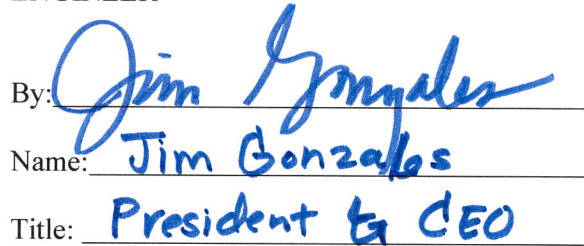 By: Jim Gonzales
Name: Jim Gonzales
Title: President & CEO